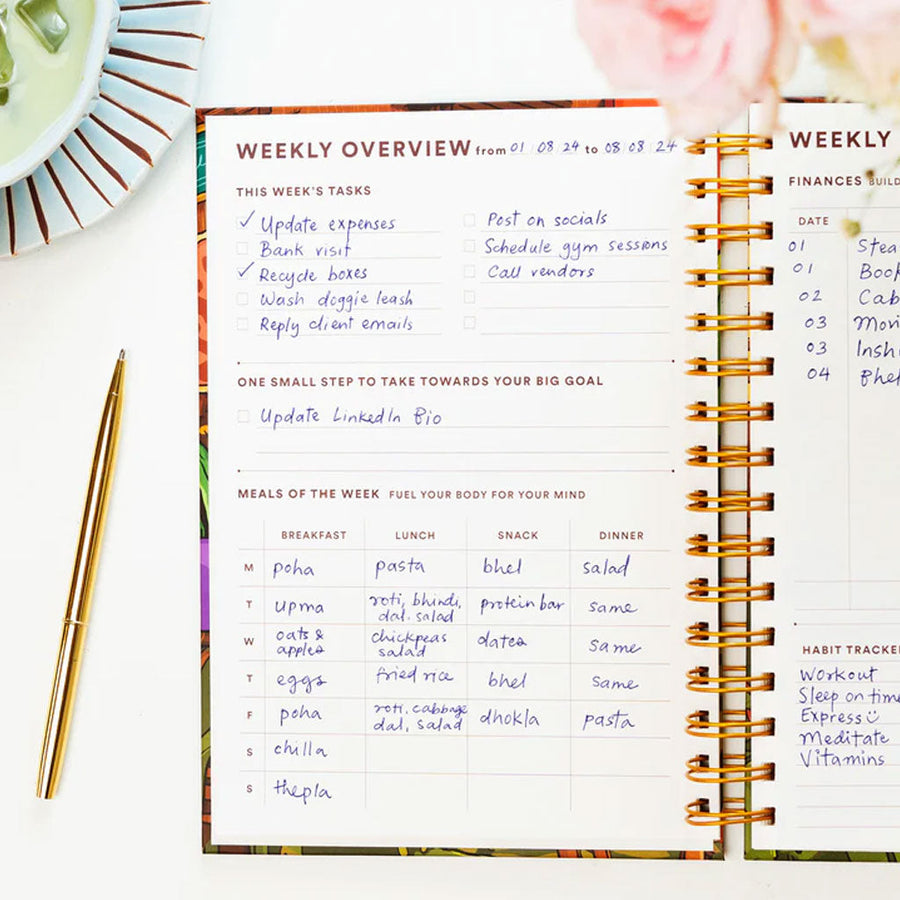 WEEKLY OVERVIEW from 01 08 24 to 08 08 24
THIS WEEK'S TASKS
Update expenses
Bank visit
Recycle boxes
Wash doggie leash
Reply client emails
Post on socials
Schedule gym sessions
Call vendors
ONE SMALL STEP TO TAKE TOWARDS YOUR BIG GOAL
Update LinkedIn Bio
MEALS OF THE WEEK FUEL YOUR BODY FOR YOUR MIND
BREAKFAST LUNCH SNACK DINNER
M poha pasta bhel salad
T upma roti, bhindi, dal. salad protein bar same
W oats & apples chickpeas salad dates same
T eggs fried rice bhel same
F poha roti, cabbage dal, salad dhokla pasta
S chilla
S thepla
WEEKLY
FINANCES BUILD
DATE
01
01 Book
02 Cab
03
03
04
HABIT TRACKER
Workout
Sleep on time
Express
Meditate
Vitamins